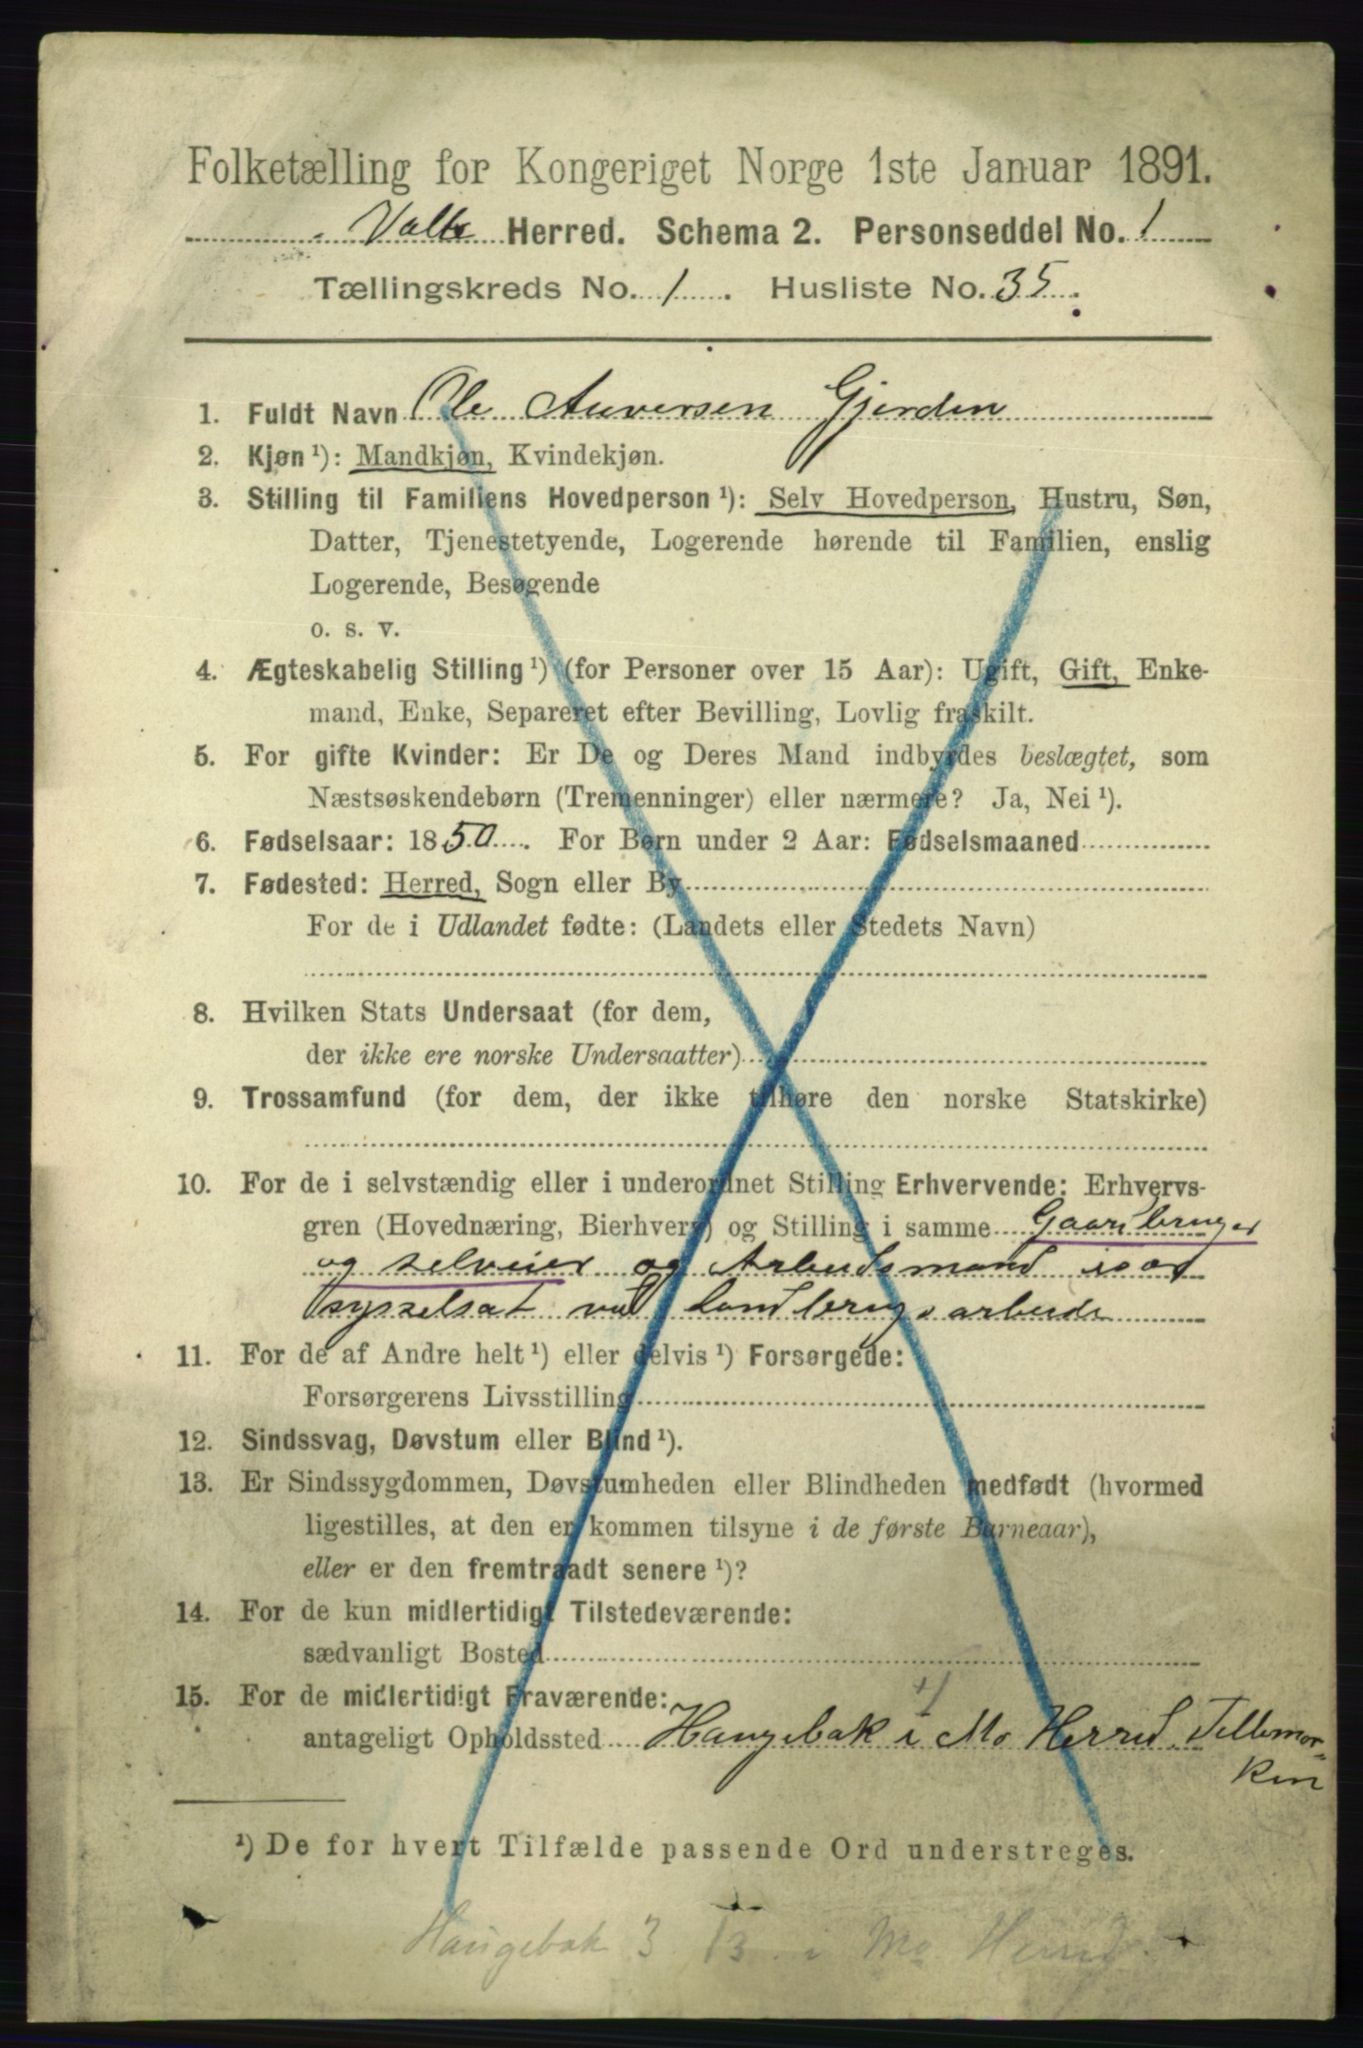 Folketælling for Kongeriget Norge 1ste Januar 1891.
Valle Herred. Schema 2. Personseddel No. 1
Tællingskreds No. 1. Husliste No. 35.
1. Fuldt Navn Ole Auversen Gjerden
2. Kjøn ¹): Mandkjøn, Kvindekjøn.
3. Stilling til Familiens Hovedperson ¹): Selv Hovedperson, Hustru, Søn,
Datter, Tjenestetyende, Logerende hørende til Familien, enslig
Logerende, Besøgende
o. s. v.
4. Ægteskabelig Stilling ¹) (for Personer over 15 Aar): Ugift, Gift, Enke-
mand, Enke, Separeret efter Bevilling, Lovlig fraskilt.
5. For gifte Kvinder: Er De og Deres Mand indbyrdes beslægtet, som
Næstsøskendebørn (Tremenninger) eller nærmere? Ja, Nei ¹).
6. Fødselsaar: 1850. For Børn under 2 Aar: Fødselsmaaned
7. Fødested: Herred, Sogn eller By
For de i Udlandet fødte: (Landets eller Stedets Navn)
8. Hvilken Stats Undersaat (for dem,
der ikke ere norske Undersaatter)
9. Trossamfund (for dem, der ikke tilhøre den norske Statskirke)
10. For de i selvstændig eller i underordnet Stilling Erhvervende: Erhvervs-
gren (Hovednæring, Bierhverv) og Stilling i samme Gaardbruger
og selveier og Arbeidsmand
sysselsat ved Landbrugsarbeide
11. For de af Andre helt ¹) eller delvis ¹) Forsørgede:
Forsørgerens Livsstilling
12. Sindssvag, Døvstum eller Blind ¹).
13. Er Sindssygdommen, Døvstumheden eller Blindheden medfødt (hvormed
ligestilles, at den er kommen tilsyne i de første Barneaar),
eller er den fremtraadt senere ¹)?
14. For de kun midlertidigt Tilstedeværende:
sædvanligt Bosted
15. For de midlertidigt Fraværende:
antageligt Opholdssted Haugebak i Mo Herred, Tellemar-
ken
¹) De for hvert Tilfælde passende Ord understreges.
Haugebak 3 13 i Mo Herred